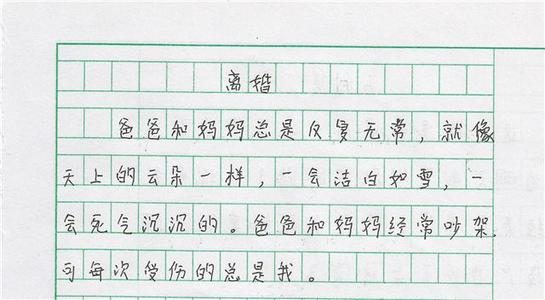 离婚
爸爸和妈妈总是反复无常，就像
天上的云朵一样，一会洁白如雪，一
会死气沉沉的。爸爸和妈妈经常吵架.
可每次受伤的总是我。